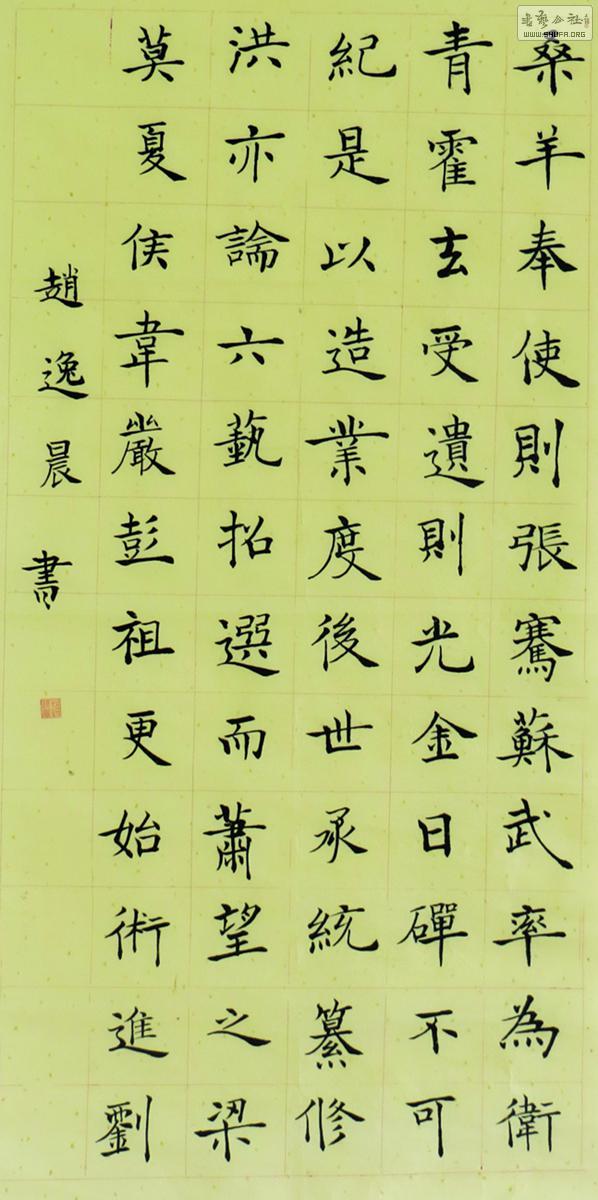 桑羊奉使則張騫蘇武率為衛
青霍去受遺則光金日磾不可
紀是以造業度後世承統纂修
洪亦論六藝招選而蕭望之梁
莫夏侯韋嚴彭祖更始術進劉
趙逸晨書
WWW.SHUFA.ORG